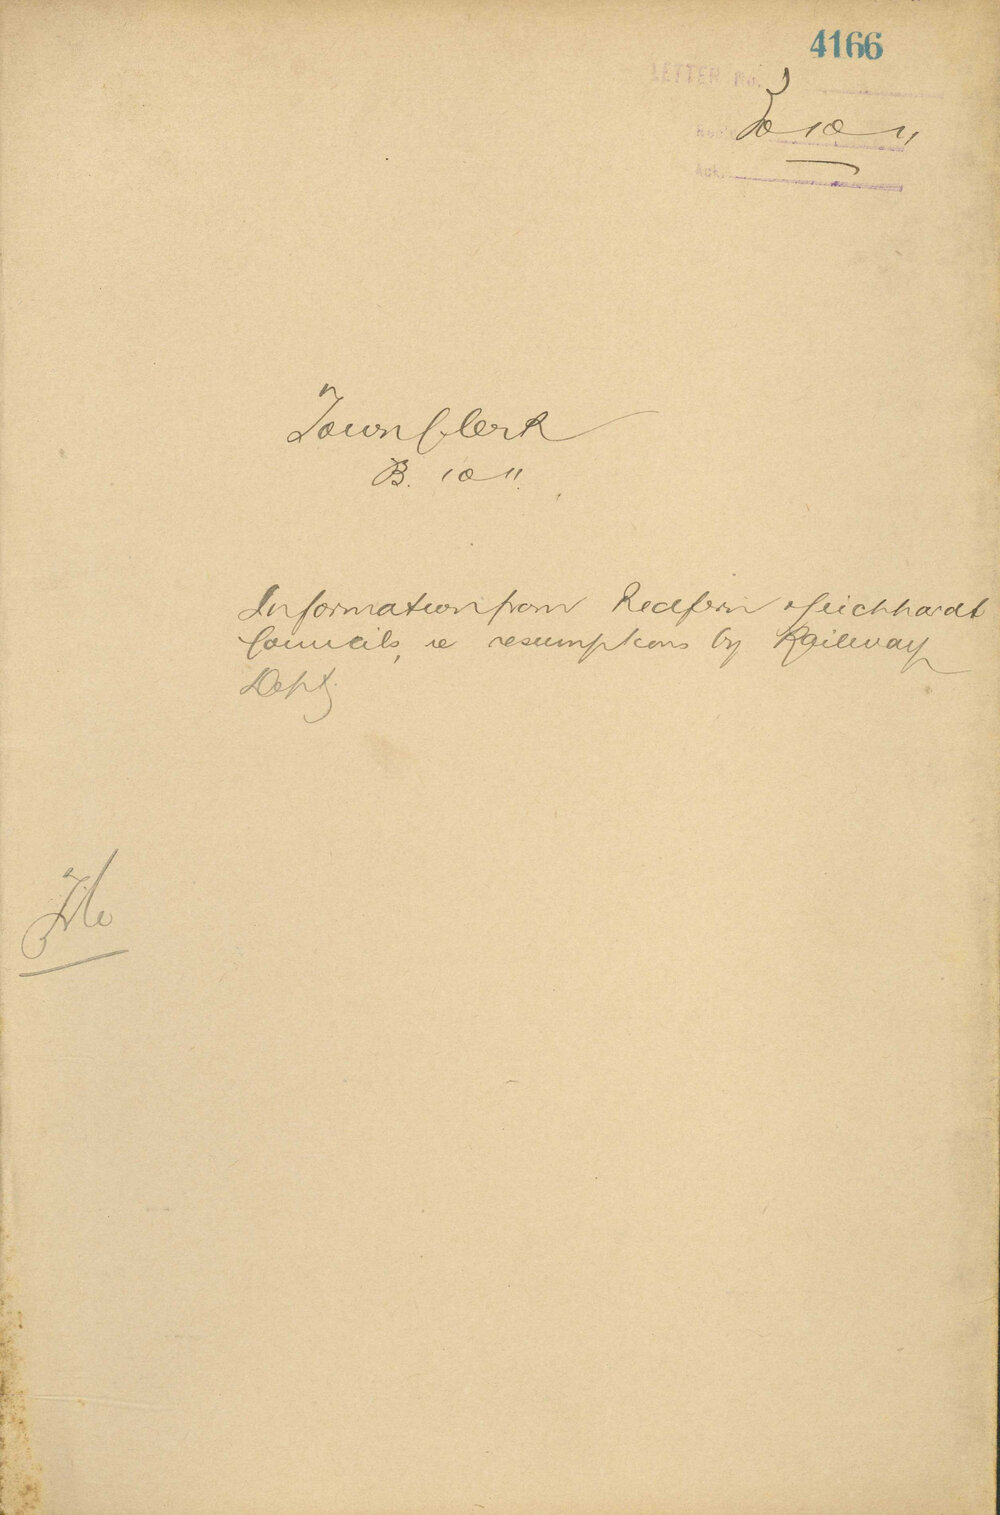 4166
LETTER No.
Rec'd 30 10 11
Ack.
Town Clerk
B. 10 11
Information from Redfern & Leichhardt
Councils, re resumptions by Railway
Dept.
File